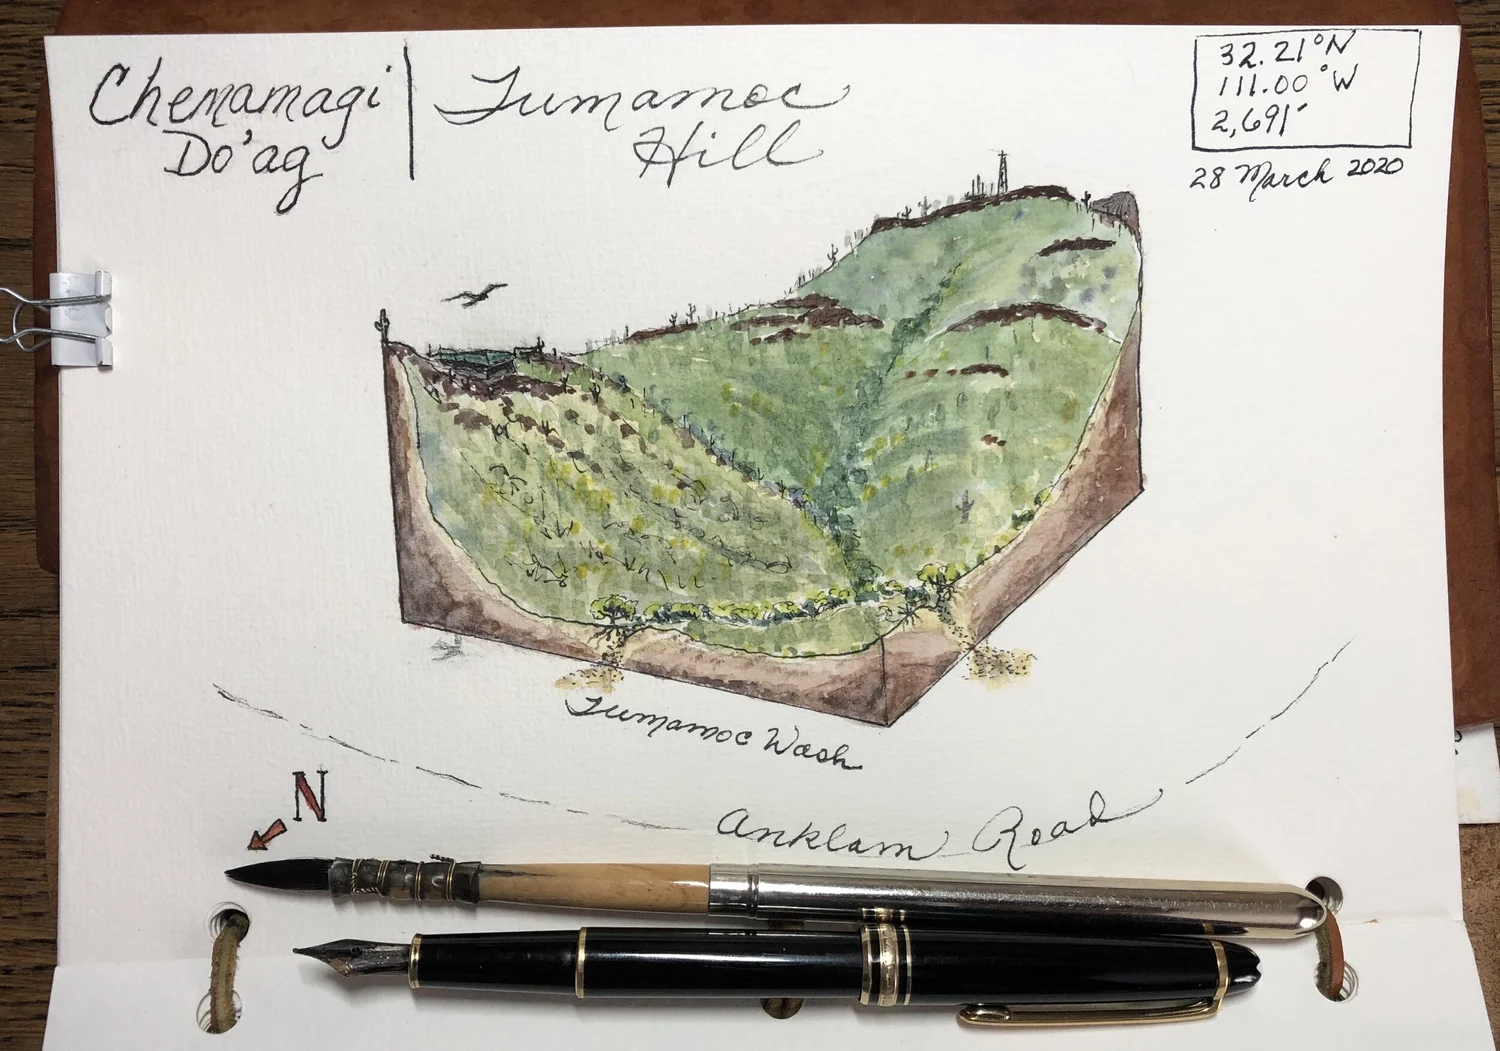 Chemamagi
Do'ag
Tumamoc
Hill
32.21°N
111.00°W
2,691'
28 March 2020
Tumamoc Wash
Anklam Road
N